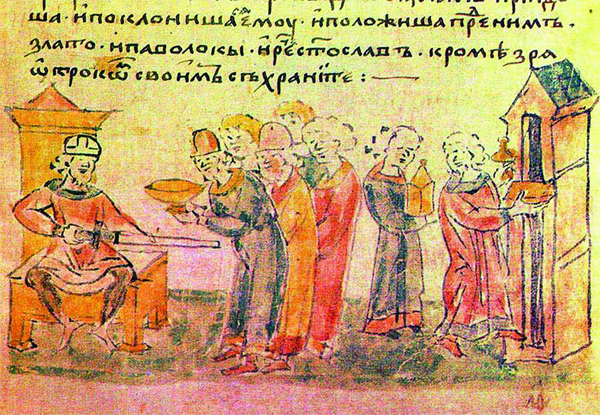 ша · ипоклонишасѧ емоу · иположиша преⷣнимъ ·
злато · ипаволокы · иреⷱ стославъ · кромѣ зрѧ
ѿрокѡⷨ своимъ съхраните :